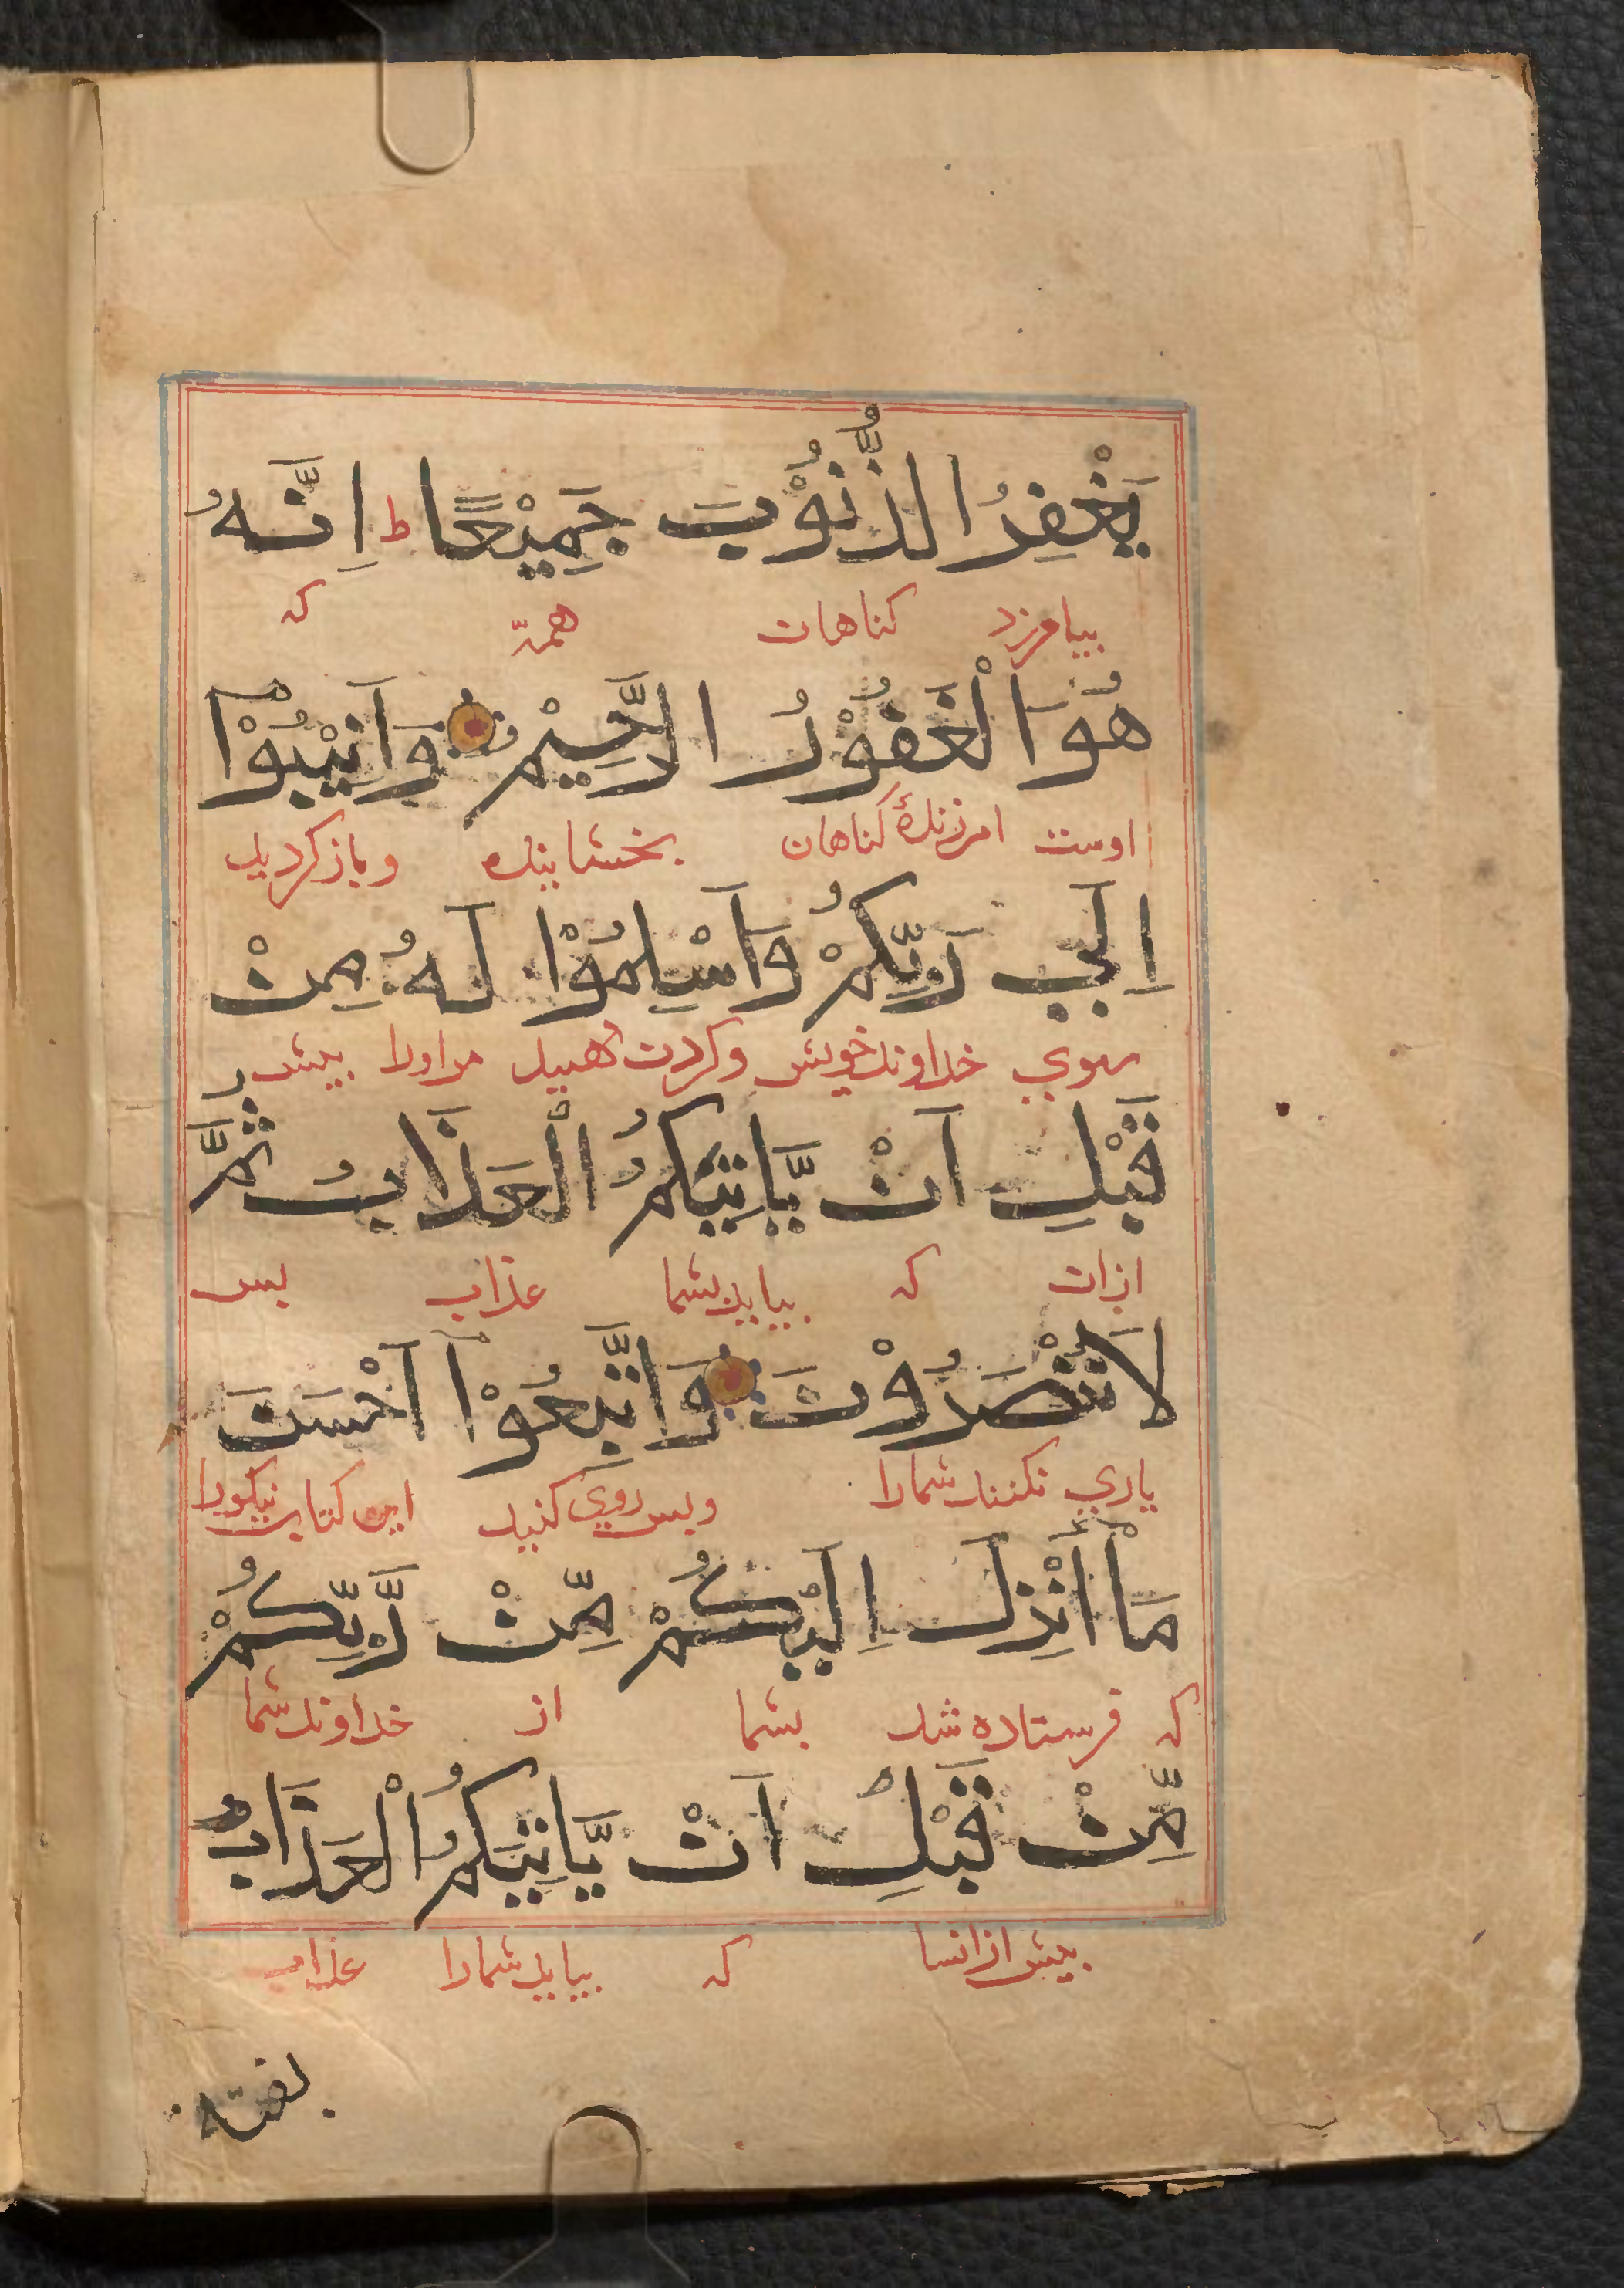 يَغْفِرُ الذُّنُوْبَ جَمِيْعًا ط اِنَّهُ
بیامرزد کناهان همهّ که
هُوَ الْغَفُوْرُ الرَّحِيْمُ وَاَنِيْبُوْٓا
اوست امرزندهٔ کناهان بخشاینده وباز کردید
اِلٰي رَبِّكُمْ وَاَسْلِمُوْا لَهُ مِنْ
بسوي خداوند خویش وکردن نهید مر اورا بیش
قَبْلِ اَنْ يَّاتِيَكُمُ الْعَذَابُ ثُمَّ
ازان که بیاید بشما عذاب بس
لَا تُنْصَرُوْنَ وَاتَّبِعُوْٓا اَحْسَنَ
یاري نکنند شمارا وبس روي کنید این کتاب نیکورا
مَآ اُنْزِلَ اِلَيْكُمْ مِّنْ رَّبِّكُمْ
که فرستاده شد بشما از خداوند شما
مِّنْ قَبْلِ اَنْ يَّاتِيَكُمُ الْعَذَابُ
بیش از انسا که بیاید شمارا عذاب
بغتة